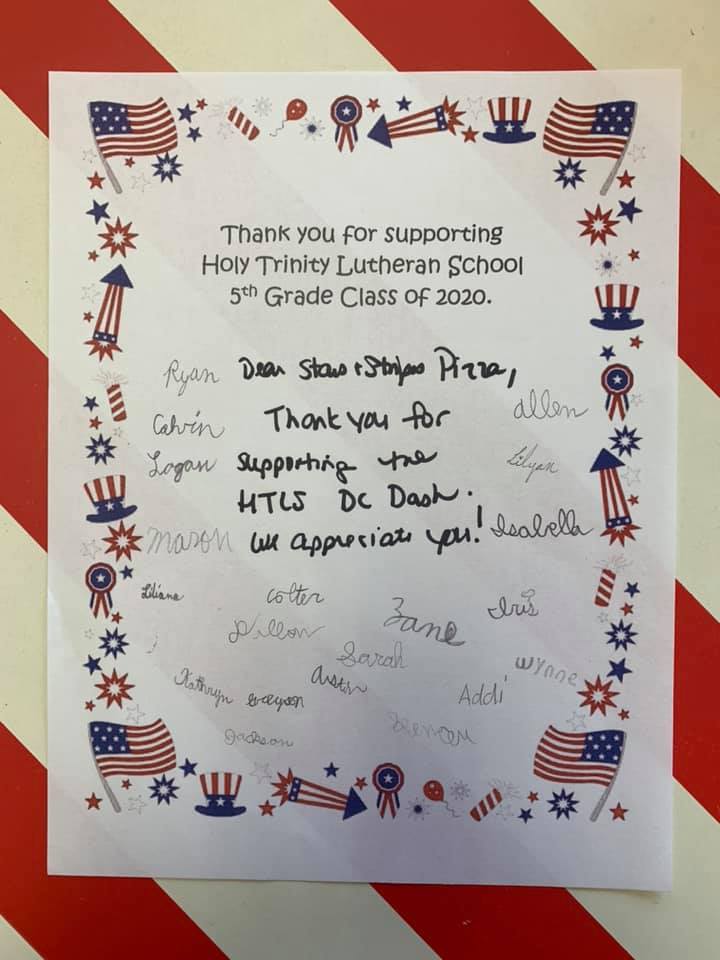 Thank you for supporting
Holy Trinity Lutheran School
5th Grade Class of 2020.
Ryan Dear Stars & Stripes Pizza,
Calvin Thank you for allen
Logan supporting the Lilyan
HTLS DC Dash.
Mason We appreciate you! Isabella
Liliana Colter Zane Iris
Dillon
Sarah Wynne
Kathryn Grayson Austin Addi
Jackson